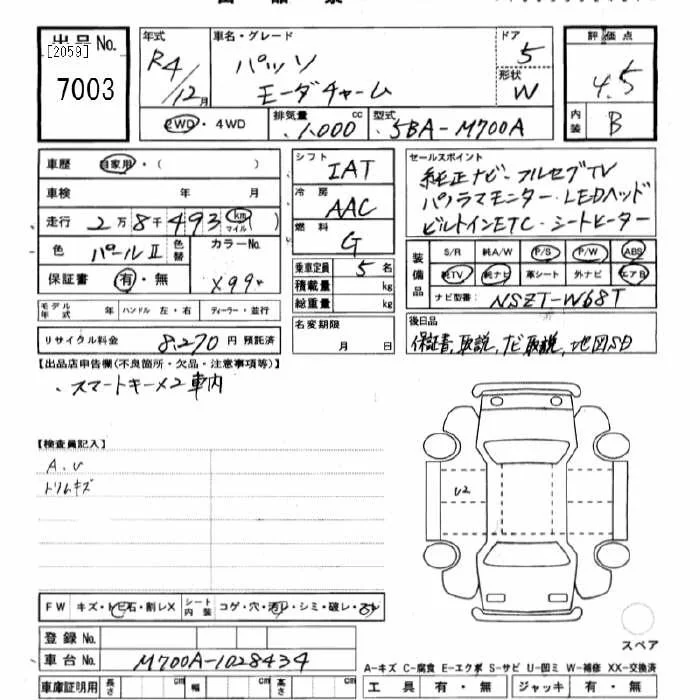 出品No.
[2059]
7003
年式
R4/12月
車名・グレード
パッソ
モーダチャーム
ドア
5
形状
W
評価点
4.5
内装
B
2WD・4WD
排気量
1,000 cc
型式
5BA-M700A
車歴 自家用・( )
車検 年 月
走行 2万8千493 km マイル ( )
色 パールⅡ 色替 カラーNo.
保証書 有・無
シフト
IAT
冷房
AAC
燃料
G
乗車定員 5 名
積載量 kg
総重量 kg
名変期限
月 日
セールスポイント
純正ナビ・フルセグTV
パノラマモニター・LEDヘッド
ビルトインETC・シートヒーター
装備品
S/R 純A/W P/S P/W ABS
純TV 純ナビ 革シート 外ナビ エアB
ナビ型番: NSZT-W68T
モデル年式 年 ハンドル 左・右 ディーラー・並行
リサイクル料金 8,270 円 預託済
後日品
保証書,取説,ナビ取説,地図SD
【出品店申告欄(不良箇所・欠品・注意事項等)】
、スマートキー×2 車内
【検査員記入】
A.U
トリムキズ
U2
FW キズ・トビ石・割レX シート内装 コゲ・穴・汚レ・シミ・破レ・スレ
登録No.
車台No. M700A-1028434
車庫証明用 長さ cm 幅 cm 高さ cm
スペア
A-キズ C-腐食 E-エクボ S-サビ U-凹ミ W-補修 XX-交換済
工具 有・無 ジャッキ 有・無